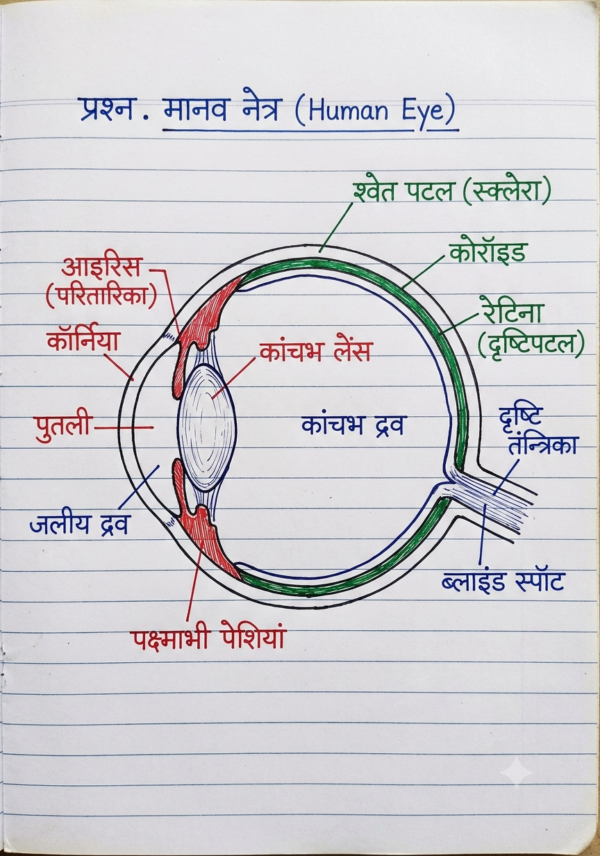 प्रश्न . मानव नेत्र (Human Eye)
श्वेत पटल (स्क्लेरा)
कोरॉइड
आइरिस
(परितारिका)
रेटिना
(दृष्टिपटल)
कॉर्निया
कांचभ लेंस
पुतली
कांचभ द्रव
दृष्टि
तंन्त्रिका
जलीय द्रव
ब्लाइंड स्पॉट
पक्ष्माभी पेशियां